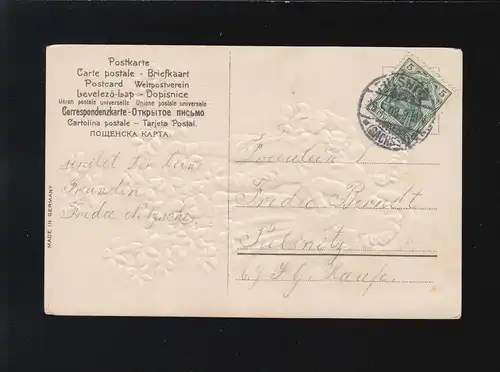 Postkarte
Carte postale - Briefkaart
Postcard Weltpostverein
Levelező-Lap - Dopisnice
Union postale universelle Unione postale universale
Correspondenzkarte - Открытое письмо
Cartolina postale - Tarjeta Postal.
ПОЩЕНСКА КАРТА.
MADE IN GERMANY
5 5
PULSNITZ
(SACHSEN)
sendet Dir Deine
Freundin
Frida
Fräulein
Frida Berndt
Pulsnitz